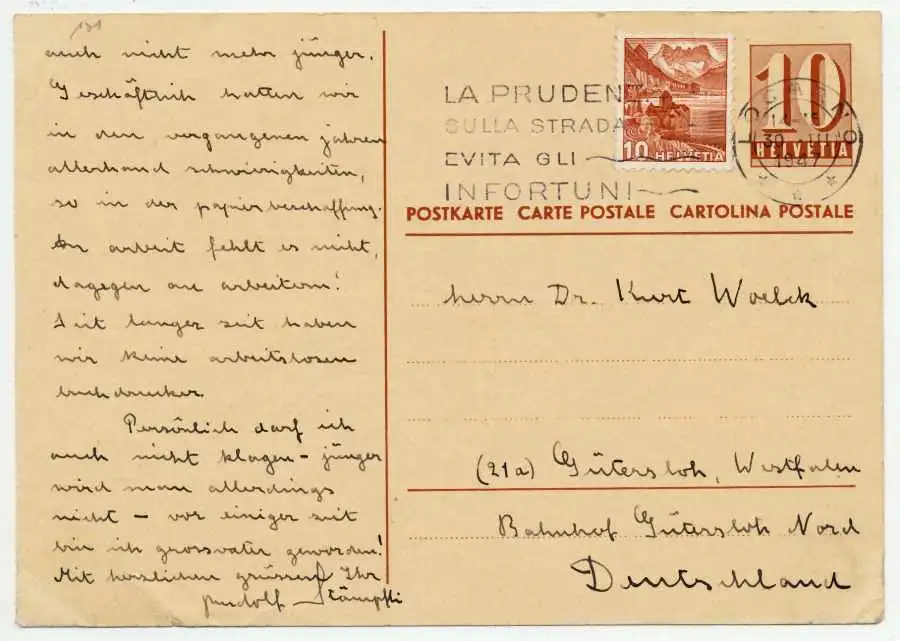 131
auch nicht mehr jünger.
Geschäftlich hatten wir
in den vergangenen jahren
allerhand schwierigkeiten,
so in der papierbeschaffung.
An arbeit fehlt es nicht,
dagegen an arbeitern!
Seit langer zeit haben
wir keine arbeitslosen
buchdrucker.
Persönlich darf ich
auch nicht klagen – jünger
wird man allerdings
nicht – vor einiger zeit
bin ich grossvater geworden!
Mit herzlichen grüssen Ihr
Rudolf Stämpfli
LA PRUDEN
SULLA STRADA
EVITA GLI
INFORTUNI
10 HELVETIA
10
HELVETIA
LOCARNO
30. III.
1947
POSTKARTE CARTE POSTALE CARTOLINA POSTALE
Herrn Dr. Kurt Woelck
(21a) Gütersloh, Westfalen
Bahnhof Gütersloh Nord
Deutschland